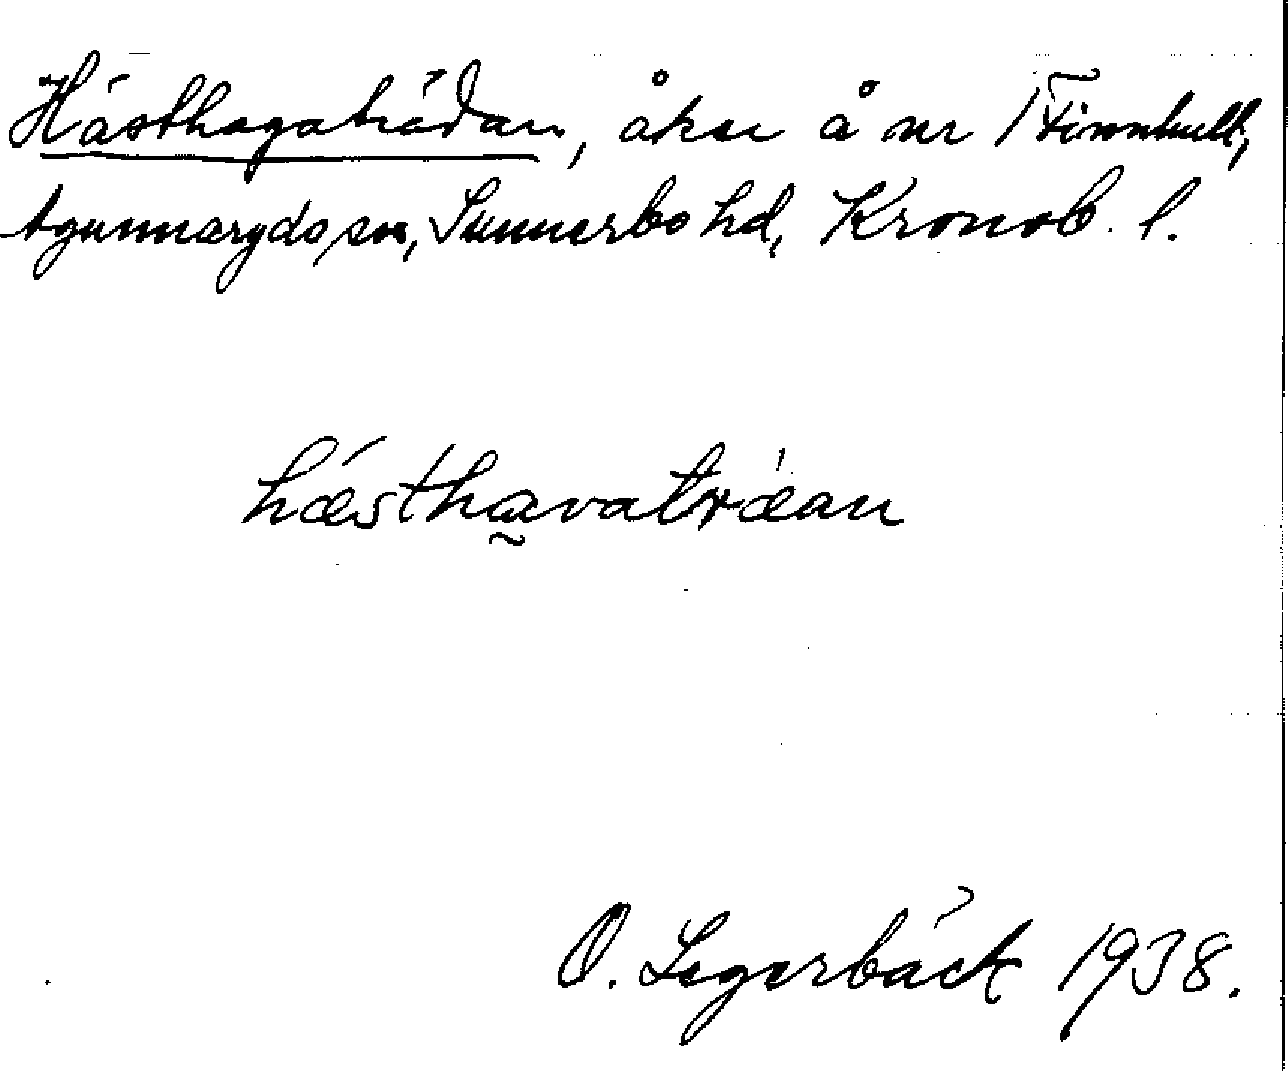 Hästhagaträdan, åker å nr 1 Finnhult,
Agunnaryds sn, Sunnerbo hd, Kronob. l.
hǽsthavatræ̀an
O. Lagerbäck 1938.